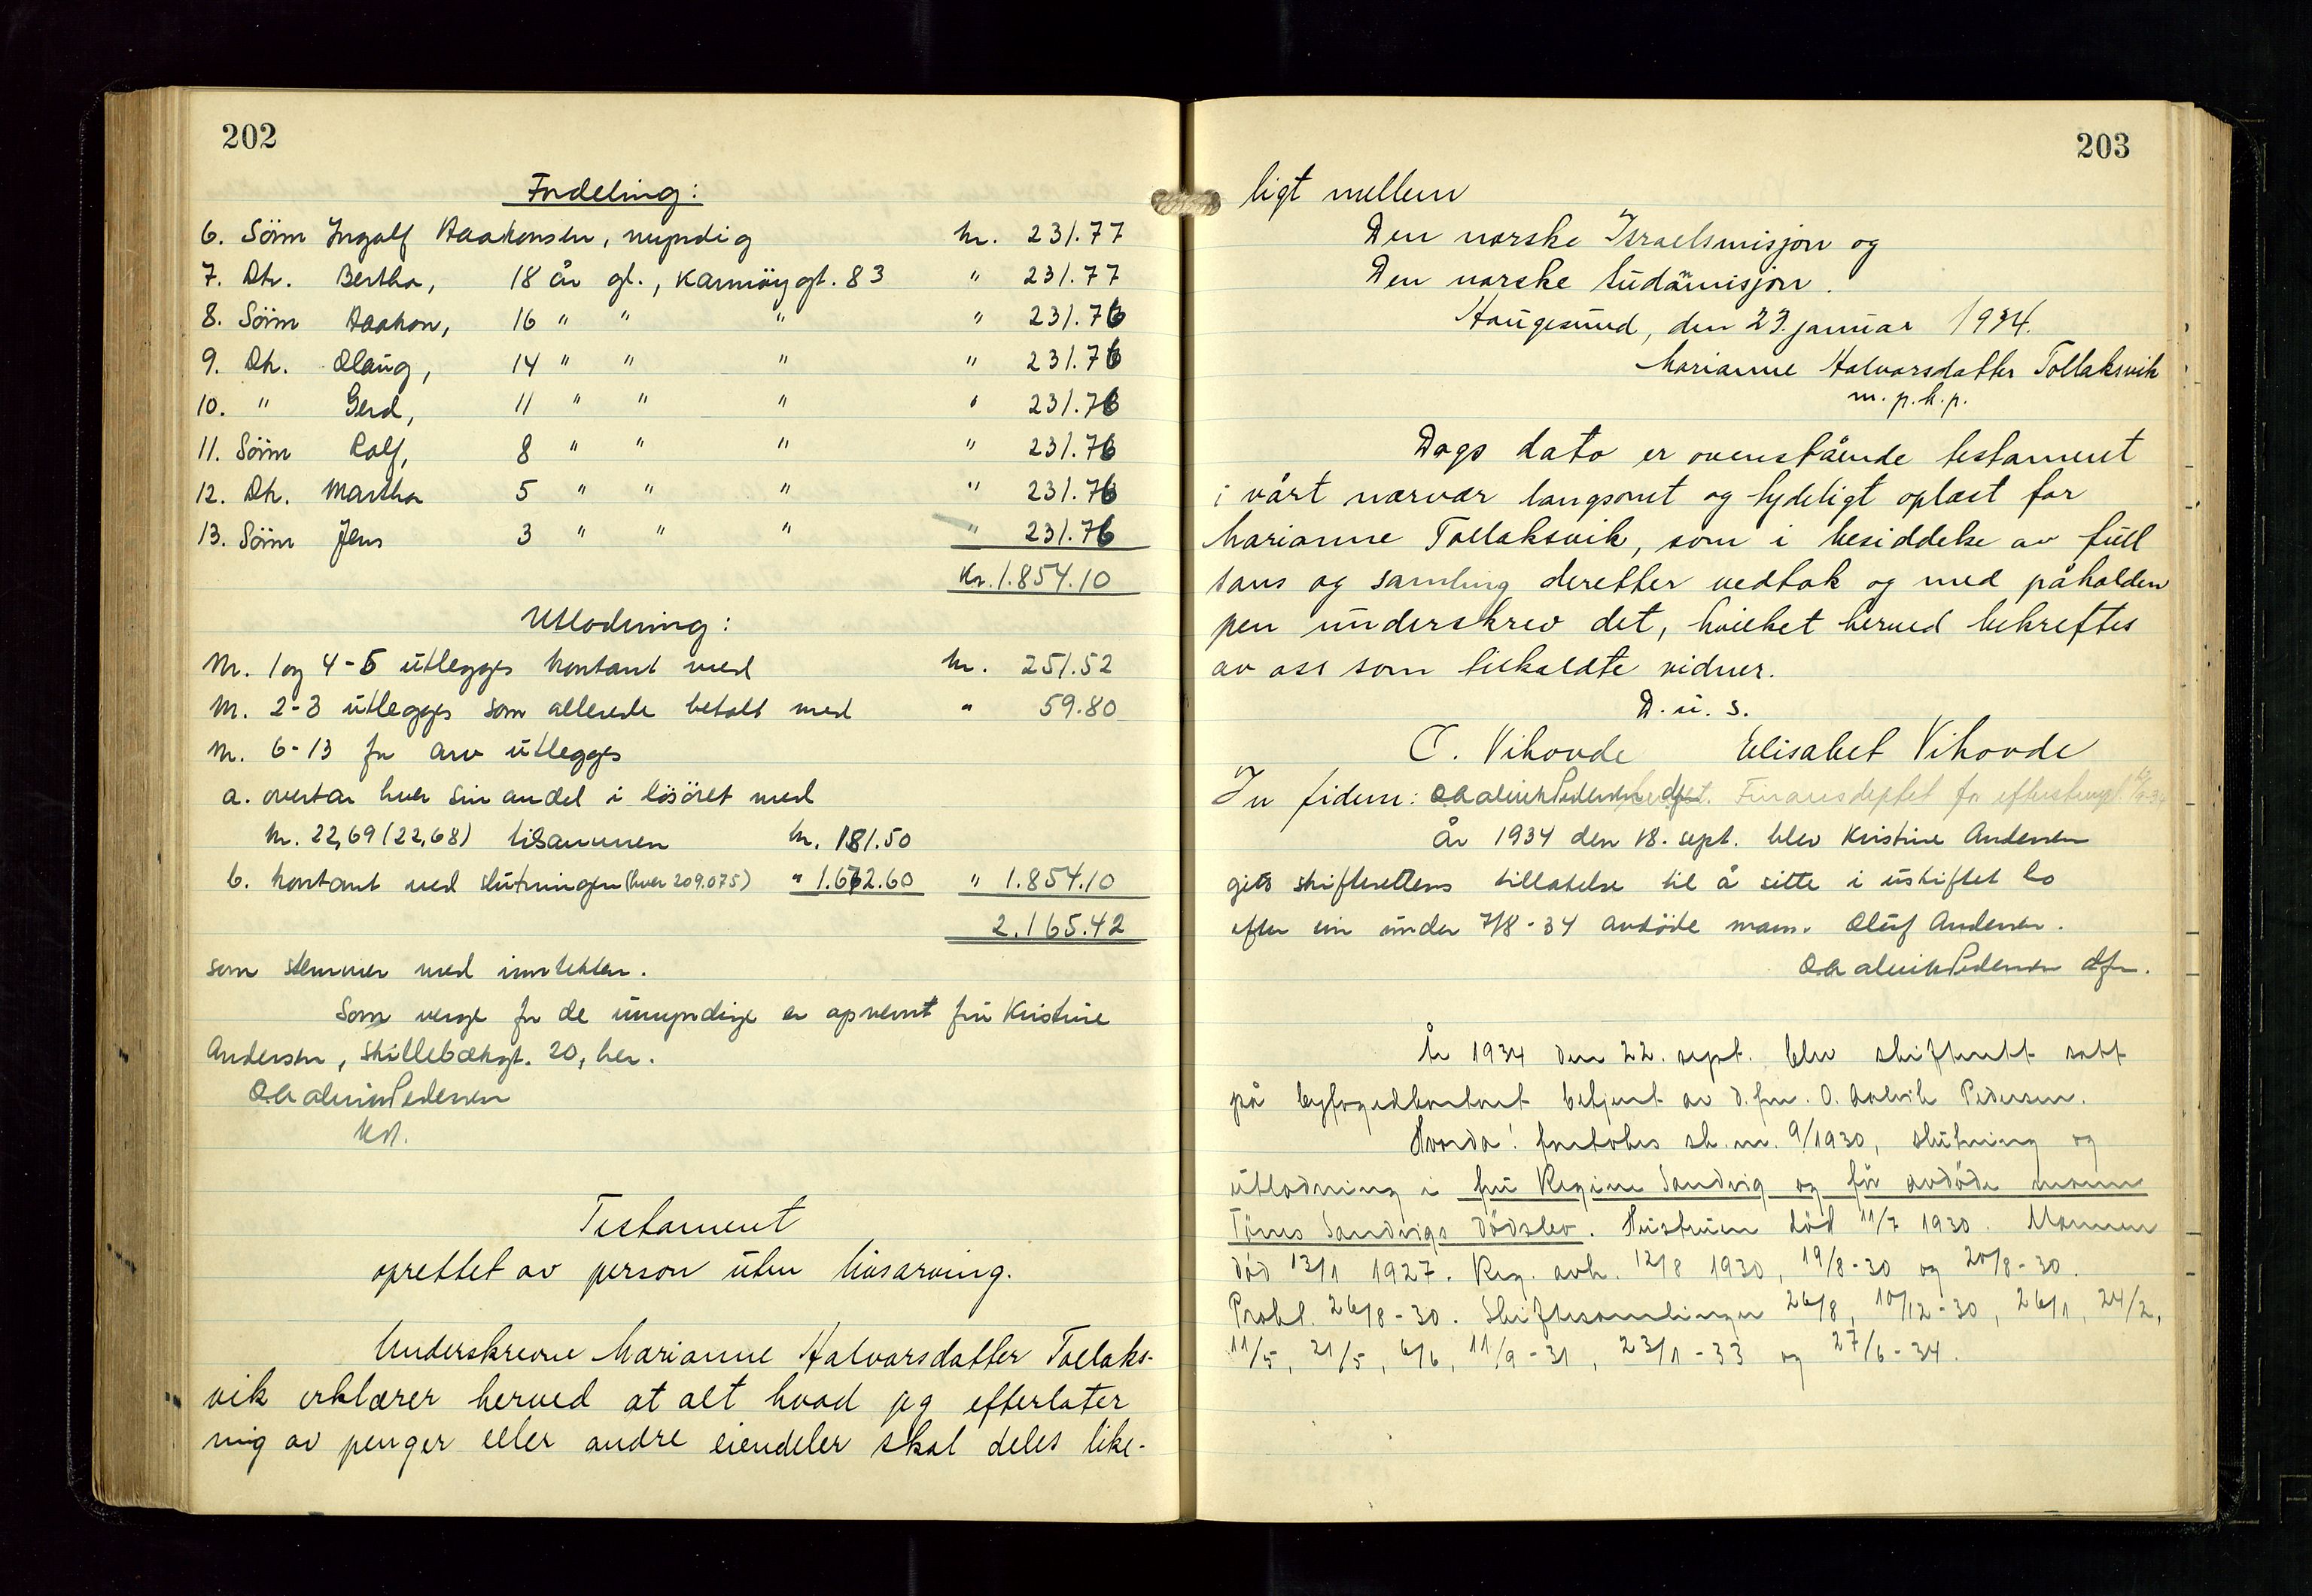 202
Fordeling:
6. Sönn Ingolf Haakonsen, myndig kr. 231.77
7. Dtr. Bertha, 18 år gl., Karmöygt. 83 " 231.77
8. Sönn Haakon, 16 " " " " 231.76
9. Dtr. Olaug, 14 " " " " 231.76
10. " Gerd, 11 " " " " 231.76
11. Sönn Rolf, 8 " " " " 231.76
12. Dtr. Martha 5 " " " " 231.76
13. Sönn Jens 3 " " " " 231.76
Kr. 1.854.10
Utlodning:
Nr. 1 og 4-5 utlegges kontant med kr. 251.52
Nr. 2-3 utlegges som allerede betalt med " 59.80
Nr. 6-13 for arv utlegges
a. overtar hver sin andel i lösöret med
kr. 22,69 (22,68) tilsammen kr. 181.50
b. kontant ved slutningen (hver 209.075) " 1.672.60 " 1.854.10
2.165.42
som stemmer med inntekten.
Som verge for de umyndige er opnevnt fru Kristine
Andersen, Skillebækgt. 20, her.
O. Aalvik Pedersen
kst.
Testament
oprettet av person uten livsarving.
Underskrevne Marianne Halvorsdatter Tollaks-
vik erklærer herved at alt hvad jeg efterlater
mig av penger eller andre eiendeler skal deles like-
203
ligt mellem
Den norske Israelsmisjon og
Den norske Sudanmisjon.
Haugesund, den 23. januar 1934.
Marianne Halvorsdatter Tollaksvik
m. p. h. p.
Dags dato er ovenstående testament
i vårt nærvær langsomt og tydeligt oplæst for
Marianne Tollaksvik, som i besiddelse av full
sans og samling deretter vedtok og med påholden
pen underskrev det, hvilket herved bekreftes
av oss som tilkaldte vidner.
D. u. s.
O. Vihovde Elisabet Vihovde
In fidem: O. Aalvik Pedersen Finansdeptet for
År 1934 den 18. sept. blev Kristine Andersen
gitt skifterettens tillatelse til å sitte i uskiftet bo
efter sin under 7/8-34 avdöde mann Oluf Andersen.
O. Aalvik Pedersen dfm.
År 1934 den 22. sept. blev skifterett satt
på byfogedkontoret betjent av d.fm. O. Aalvik Pedersen.
Hvorda! foretokes sk. nr. 9/1930, slutning og
utlodning i fru Regine Sandvig og för avdöde mann
Tönes Sandvigs dödsbo. Hustruen död 11/7 1930. Mannen
död 13/1 1927. Reg. avh. 12/8 1930, 19/8-30 og 20/8-30.
Prokl. 26/8-30. Skiftesamlinger 26/8, 10/12-30, 26/1, 24/2,
11/5, 21/5, 6/6, 11/9-31, 23/1-33 og 27/6-34.